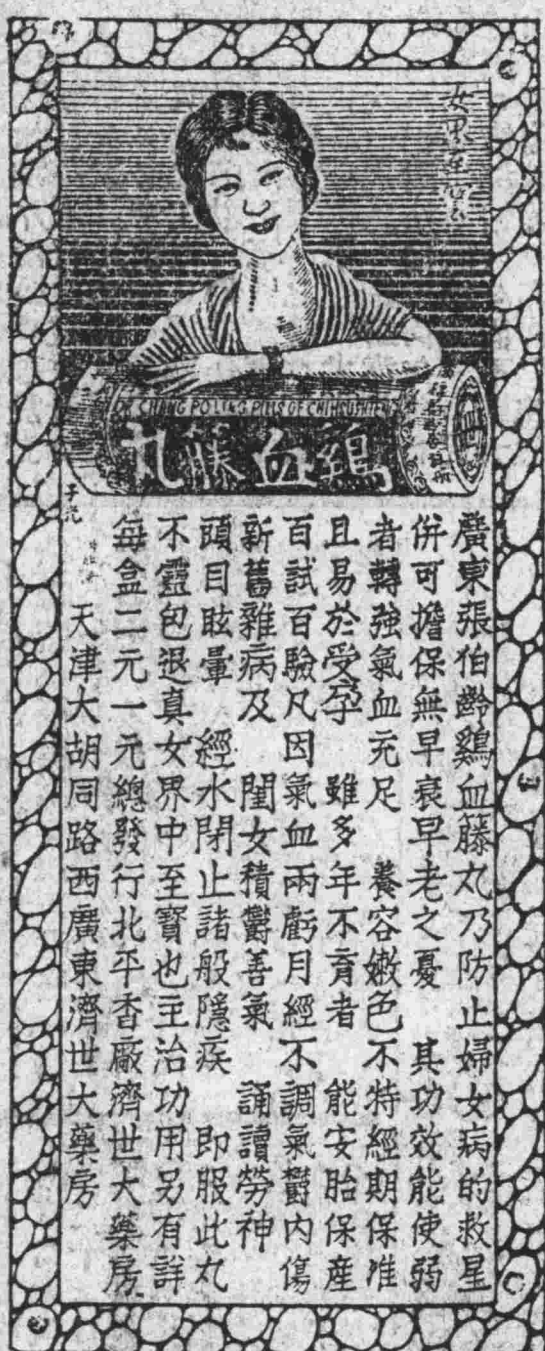 女界至寶
CHANG PO LING PILLS OF
鷄血籐丸
廣東張伯齡鷄血籐丸乃防止婦女病的救星
併可擔保無早衰早老之憂 其功效能使弱
者轉強氣血充足 養容嫩色不特經期保准
且易於受孕 雖多年不育者 能安胎保産
百試百驗凡因氣血兩虧月經不調氣欝內傷
新舊雜病及 閨女積欝善氣 誦讀勞神
頭目眩暈 經水閉止諸般隱疾 即服此丸
不靈包退真女界中至寶也主治功用另有詳
每盒二元一元總發行北平香廠濟世大藥房
天津大胡同路西廣東濟世大藥房